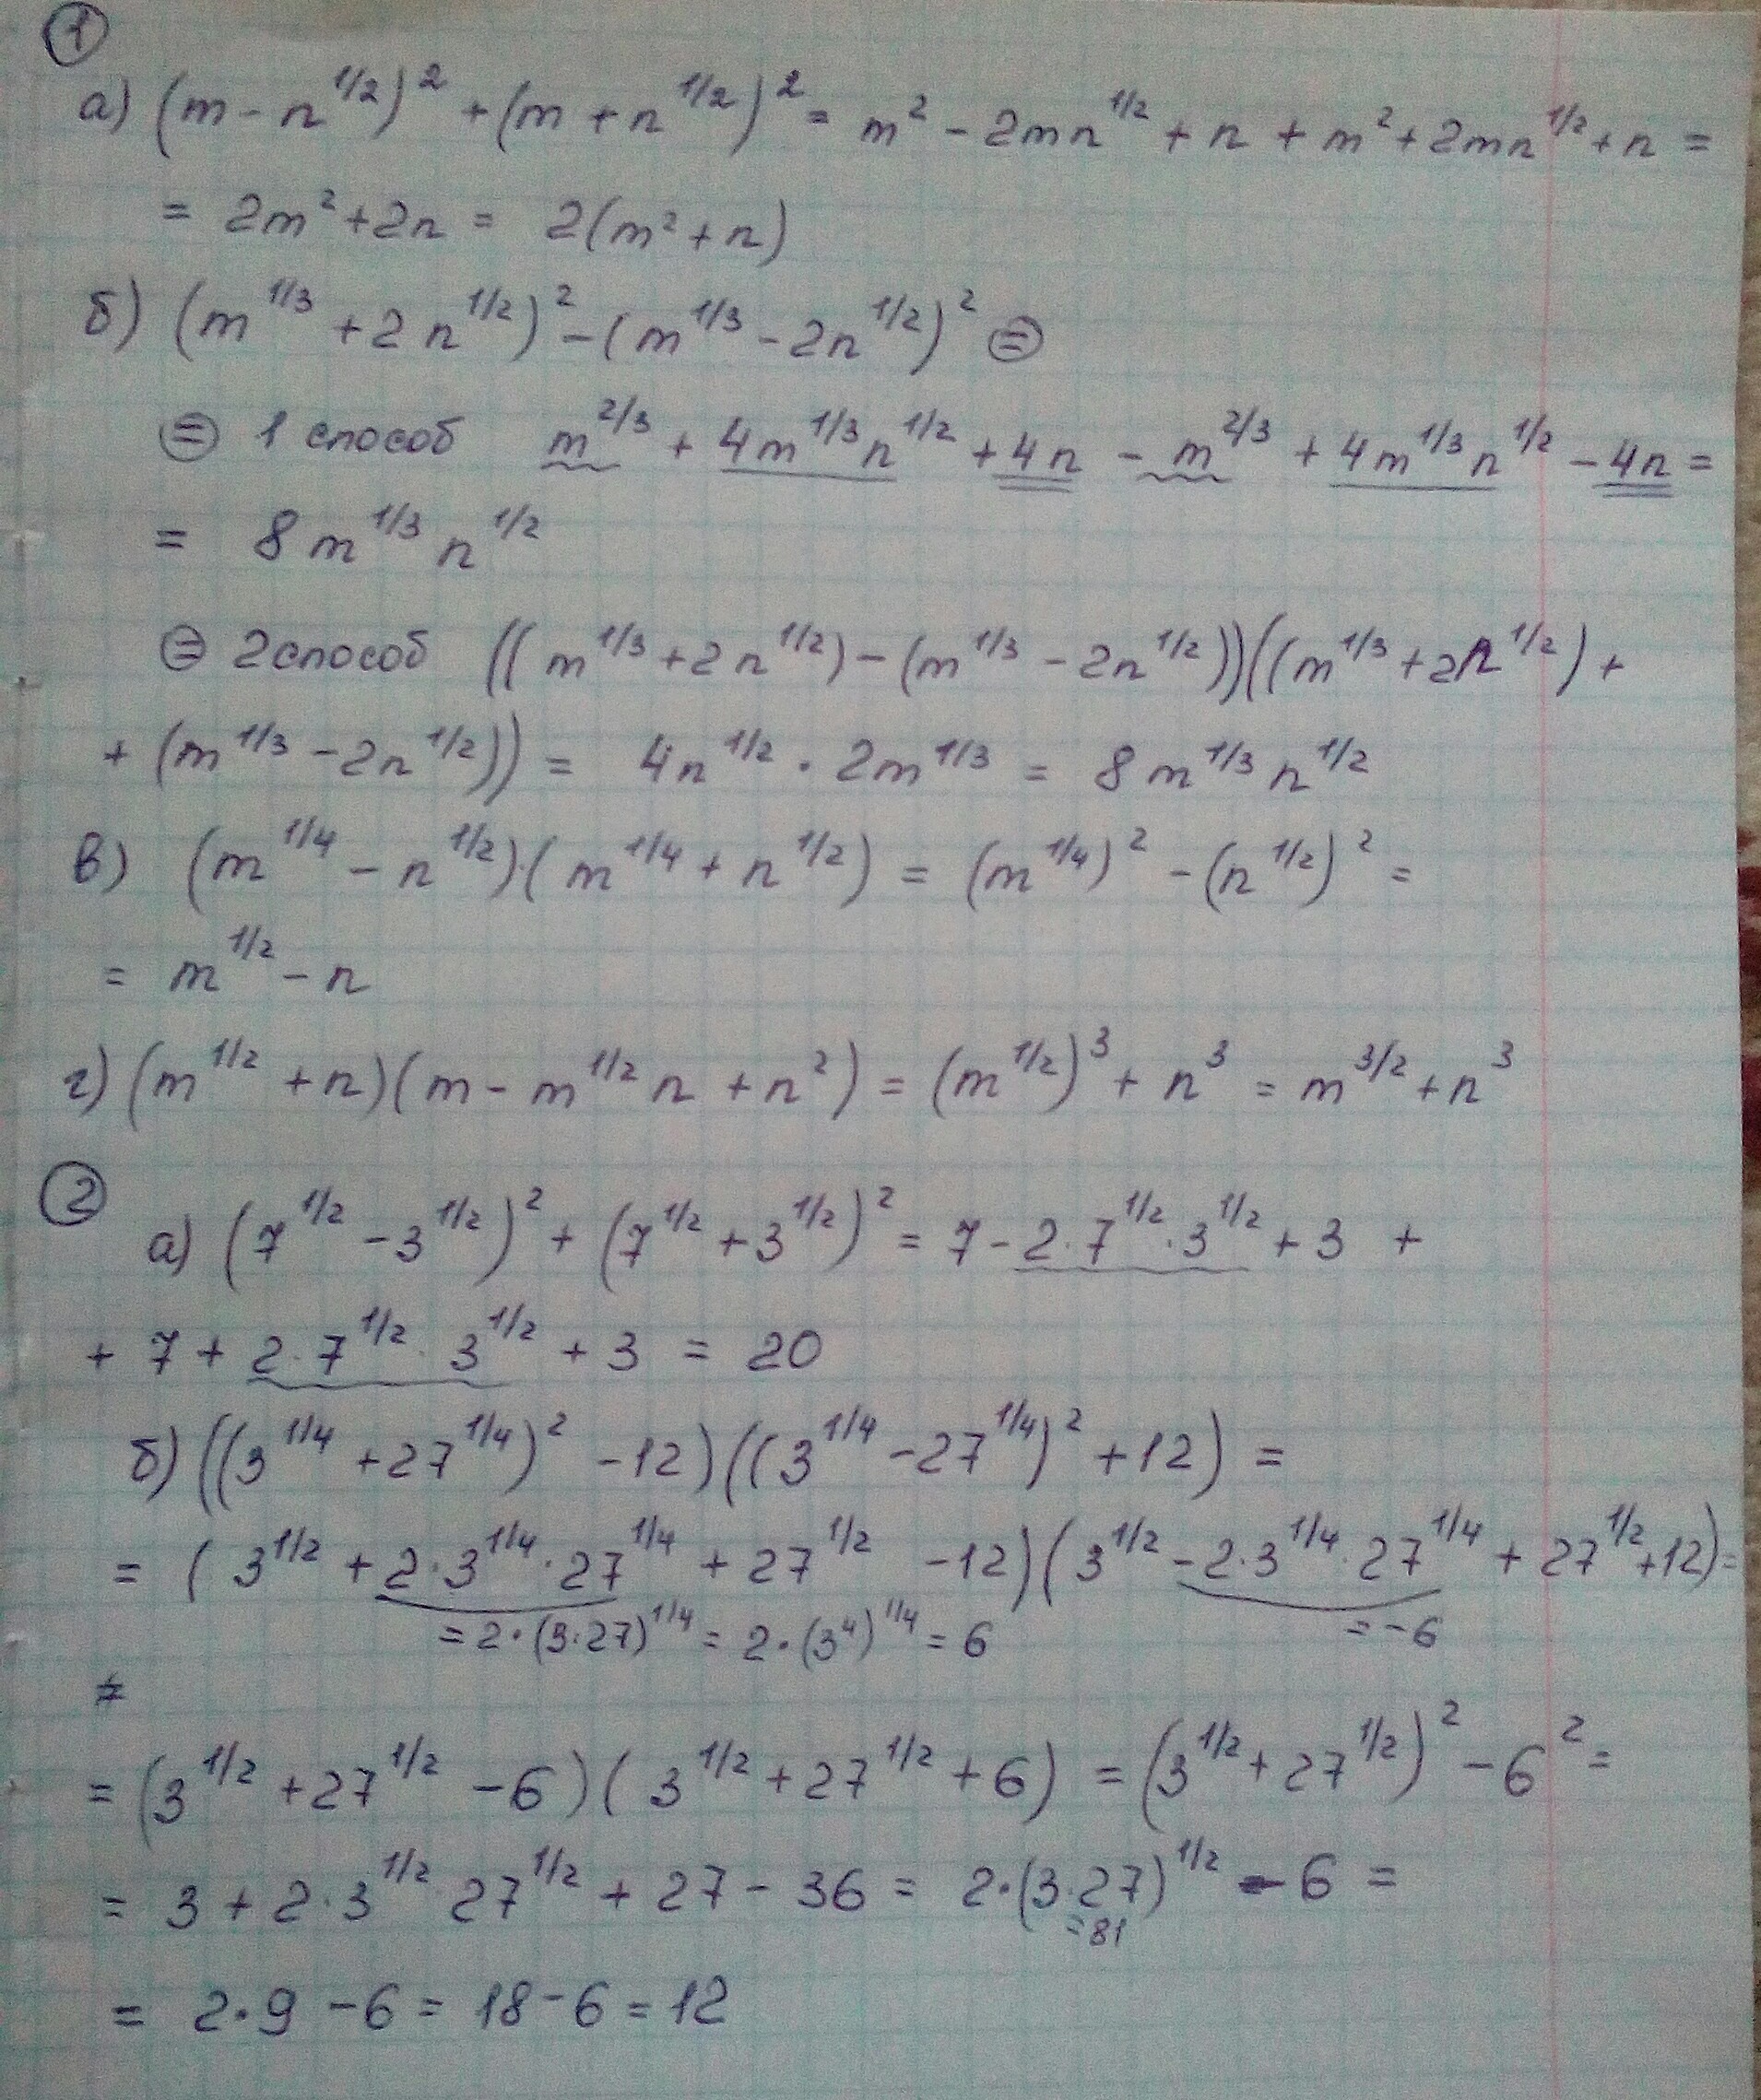 ①
а) (m - n^1/2)^2 + (m + n^1/2)^2 = m^2 - 2mn^1/2 + n + m^2 + 2mn^1/2 + n =
= 2m^2 + 2n = 2(m^2 + n)
б) (m^1/3 + 2n^1/2)^2 - (m^1/3 - 2n^1/2)^2 ⊜
⊜ 1 способ m^2/3 + 4m^1/3 n^1/2 + 4n - m^2/3 + 4m^1/3 n^1/2 - 4n =
= 8m^1/3 n^1/2
⊜ 2 способ ((m^1/3 + 2n^1/2) - (m^1/3 - 2n^1/2))((m^1/3 + 2n^1/2) +
+ (m^1/3 - 2n^1/2)) = 4n^1/2 · 2m^1/3 = 8m^1/3 n^1/2
в) (m^1/4 - n^1/2)·(m^1/4 + n^1/2) = (m^1/4)^2 - (n^1/2)^2 =
= m^1/2 - n
г) (m^1/2 + n)(m - m^1/2 n + n^2) = (m^1/2)^3 + n^3 = m^3/2 + n^3
②
а) (7^1/2 - 3^1/2)^2 + (7^1/2 + 3^1/2)^2 = 7 - 2·7^1/2·3^1/2 + 3 +
+ 7 + 2·7^1/2·3^1/2 + 3 = 20
б) ((3^1/4 + 27^1/4)^2 - 12)((3^1/4 - 27^1/4)^2 + 12) =
= (3^1/2 + 2·3^1/4·27^1/4 + 27^1/2 - 12)(3^1/2 - 2·3^1/4·27^1/4 + 27^1/2 + 12) =
= 2·(3·27)^1/4 = 2·(3^4)^1/4 = 6 = -6
= (3^1/2 + 27^1/2 - 6)(3^1/2 + 27^1/2 + 6) = (3^1/2 + 27^1/2)^2 - 6^2 =
= 3 + 2·3^1/2 27^1/2 + 27 - 36 = 2·(3·27)^1/2 - 6 =
= 81
= 2·9 - 6 = 18 - 6 = 12